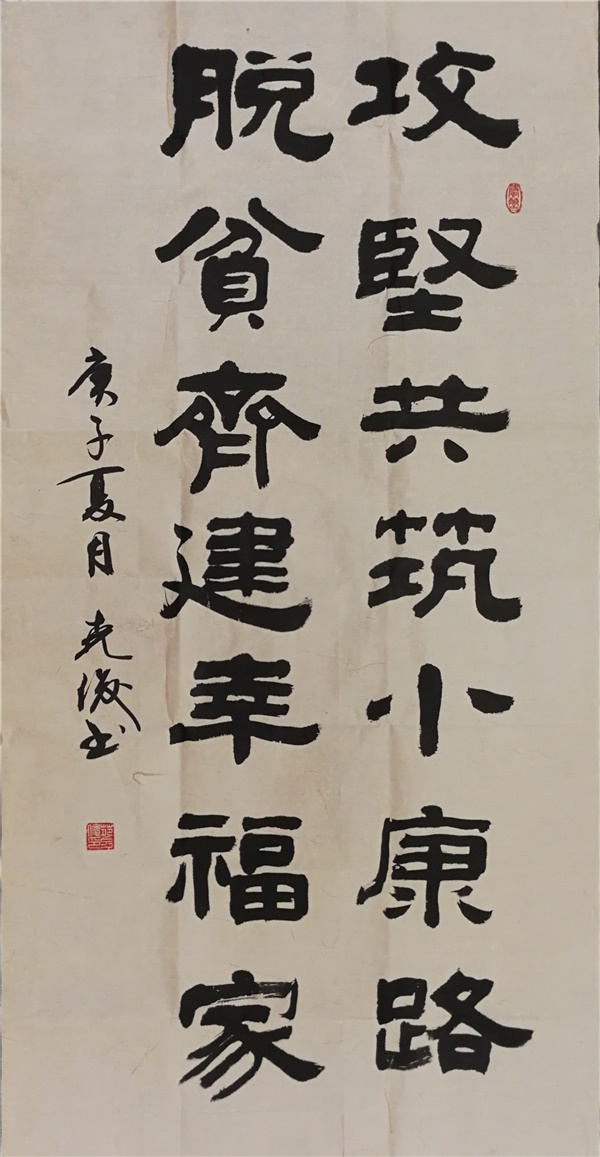 攻堅共筑小康路
脱貧齊建幸福家
庚子夏月 克俊书